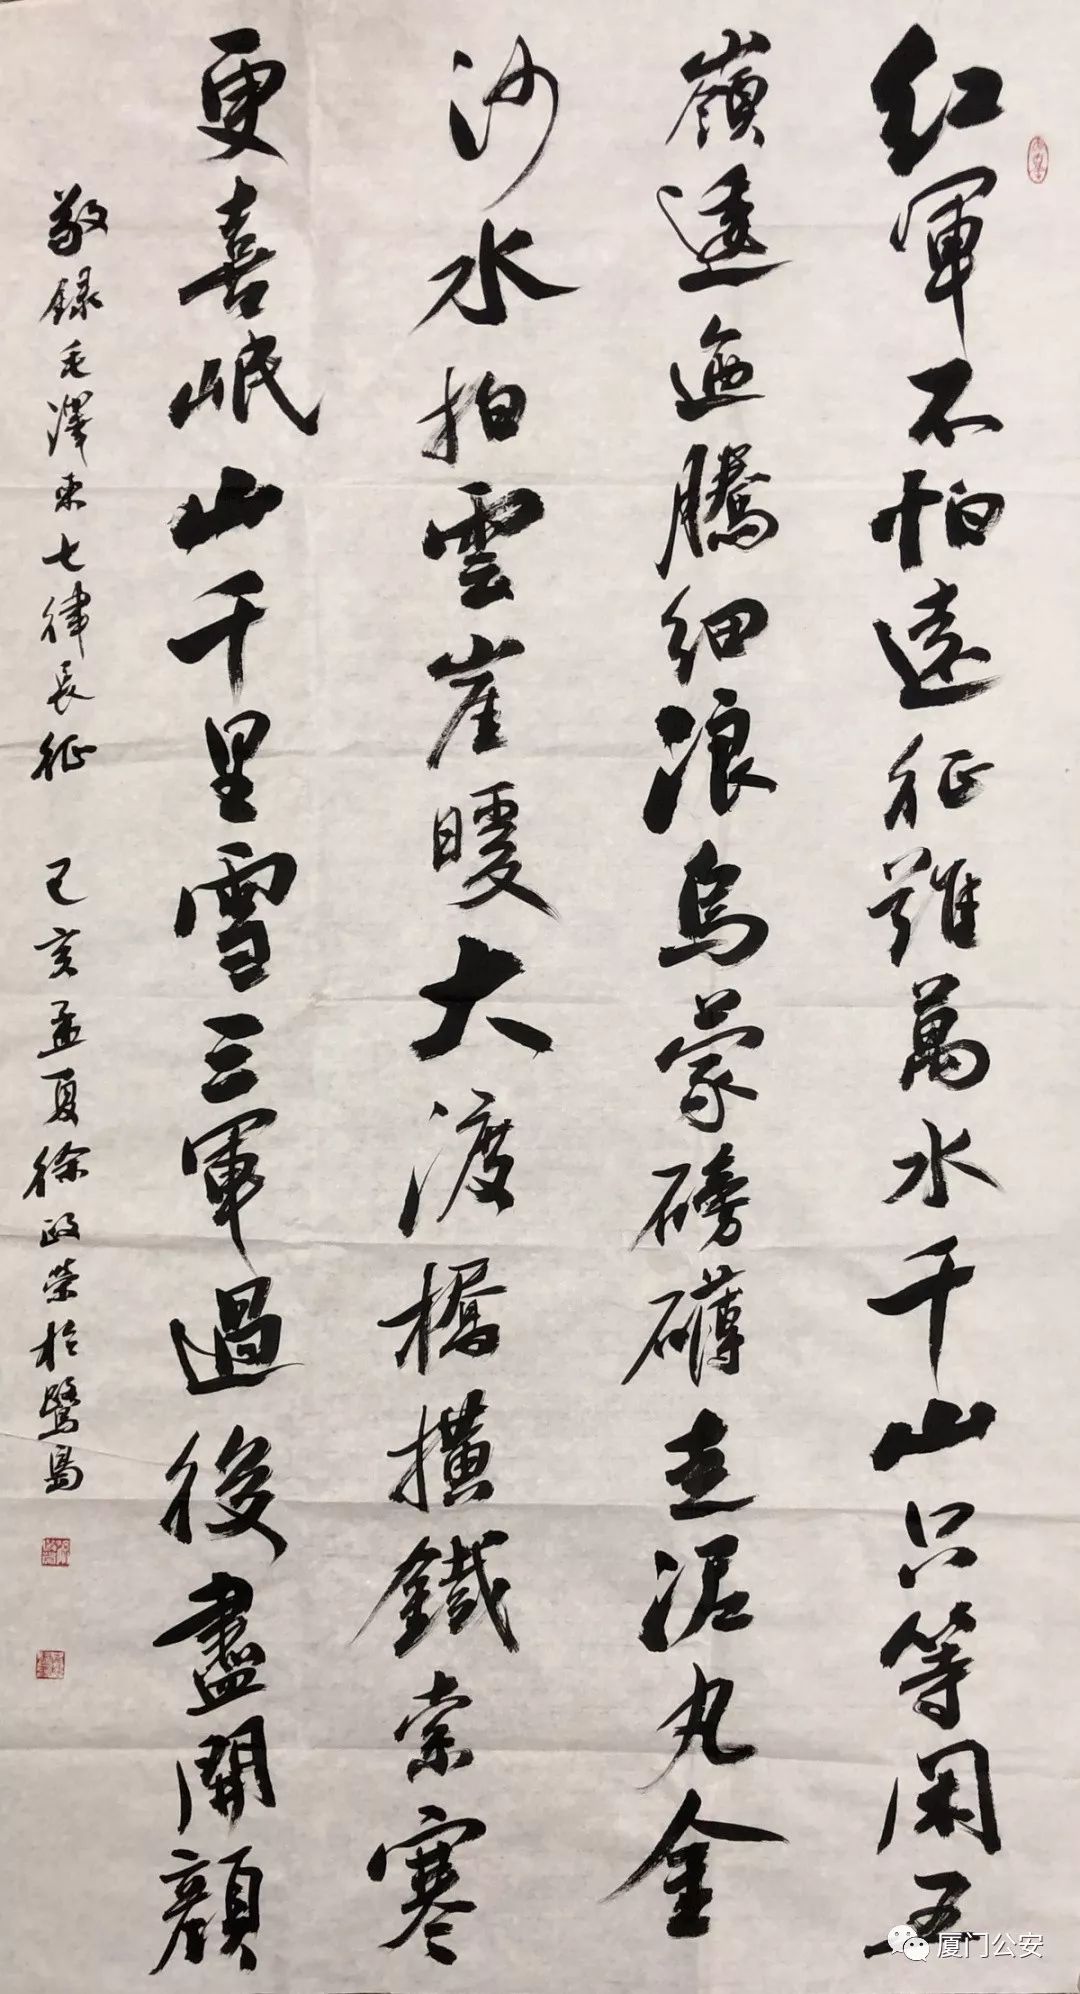 红軍不怕遠征難萬水千山只等閑五
嶺逶迤騰細浪烏蒙磅礴走泥丸金
沙水拍雲崖暖大渡橋橫鐵索寒
更喜岷山千里雪三軍過後盡開顔
敬録毛澤東七律長征 己亥孟夏徐政榮於鷺島
厦门公安